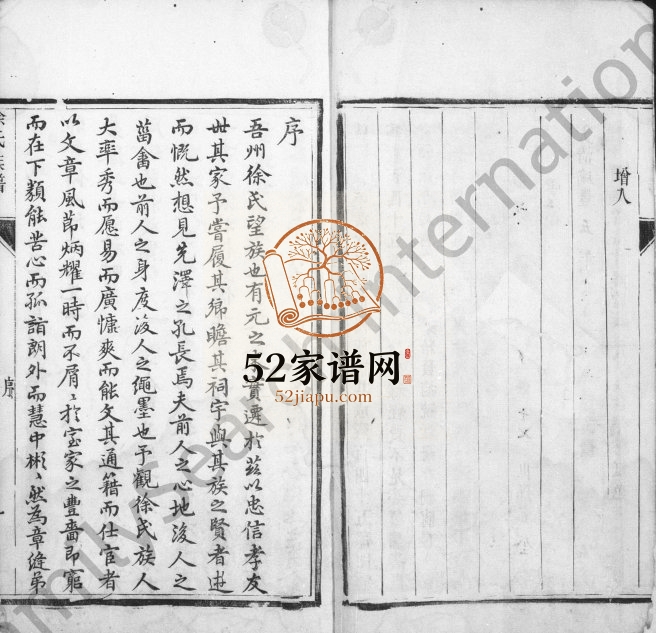 增入
序
吾州徐氏望族也有元之貫遷於茲以忠信孝友
世其家予嘗履其鄉瞻其祠宇與其族之賢者遊
而慨然想見先澤之孔長焉夫前人之心地後人之
菑畬也前人之身度後人之繩墨也予觀徐氏族人
大率秀而愿易而廣慷爽而能文其通籍而仕宦者
以文章風節炳耀一時而不屑屑於室家之豐嗇即窮
而在下類能苦心而孤詣朗外而慧中彬彬然為章縫弟
徐氏族譜
序
一
52家谱网
52jiapu.com
FamilySearch International